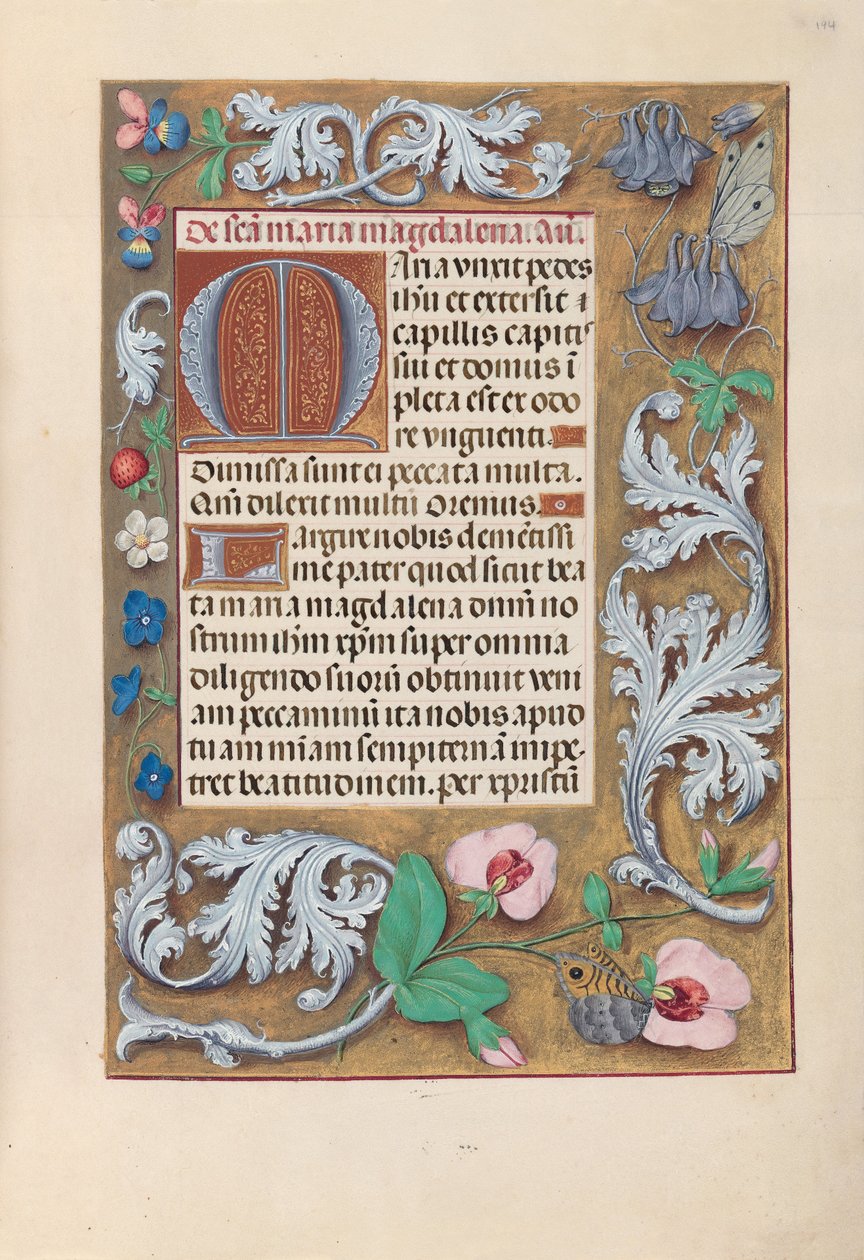 194
De scā maria magdalena. Añ.
Maria vnxit pedes
ihū et extersit
capillis capitis
sui et domus ī
pleta est ex odo
re vnguenti.
Dimissa sunt ei peccata multa.
Qm̄ dilexit multū Oremus.
Largire nobis clemētissi
me pater quod sicut bea
ta maria magdalena dnm̄ no
strum ihm̄ xpm̄ super omnia
diligendo suorū obtinuit veni
am peccaminū ita nobis apud
tuam miam̄ sempiternā impe-
tret beatitudinem. per xpristū